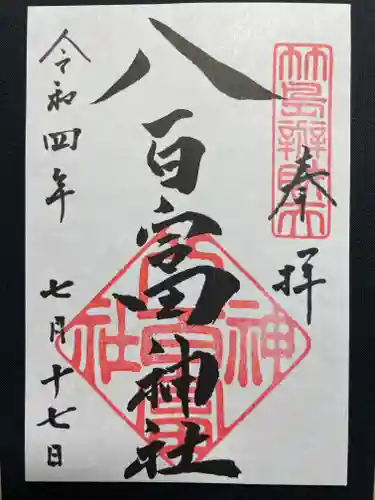 奉拝
竹島辨財天
八百富神社
八百富神社
令和四年
七月十七日